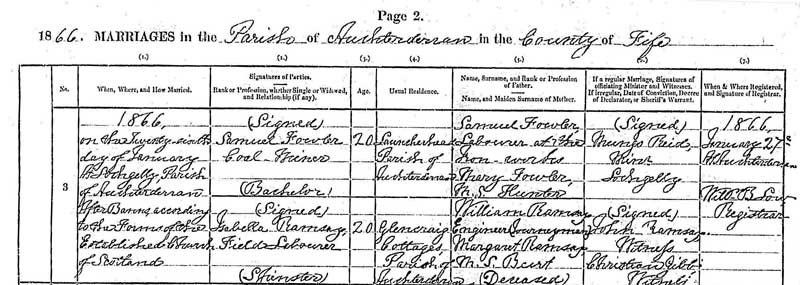 Page 2.
1866. MARRIAGES in the Parish of Auchterderran in the County of Fife
(1.) (2.) (3.) (4.) (5.) (6.) (7.)
No.
When, Where, and How Married.
Signatures of Parties.
Rank or Profession, whether Single or Widowed, and Relationship (if any).
Age.
Usual Residence.
Name, Surname, and Rank or Profession of Father.
Name, and Maiden Surname of Mother.
If a regular Marriage, Signatures of officiating Minister and Witnesses.
If irregular, Date of Conviction, Decree of Declarator, or Sheriff's Warrant.
When & Where Registered, and Signature of Registrar.
3
1866,
on the Twenty-sixth
day of January
At Lochgelly Parish
of Auchterderran
After Banns according
to the Forms of the
Established Church
of Scotland
(Signed)
Samuel Fowler
Coal Miner
(Bachelor)
(Signed)
Isabella Ramsay
Field Labourer
(Spinster)
20
20
Parish of
Auchterderran
Glencraig
Cottages,
Parish of
Auchterderran
Samuel Fowler,
Labourer at
Iron-works
Mary Fowler,
M.S. Hunter
William Ramsay
Engineer Journeyman
Margaret Ramsay
M.S. Burt
(Deceased)
(Signed)
Mungo Reid,
Minr
Lochgelly
(Signed)
John Ramsay
Witness
Christian
Witness
1866,
January 27th
At Auchterderran
Willm B. Low
Registrar